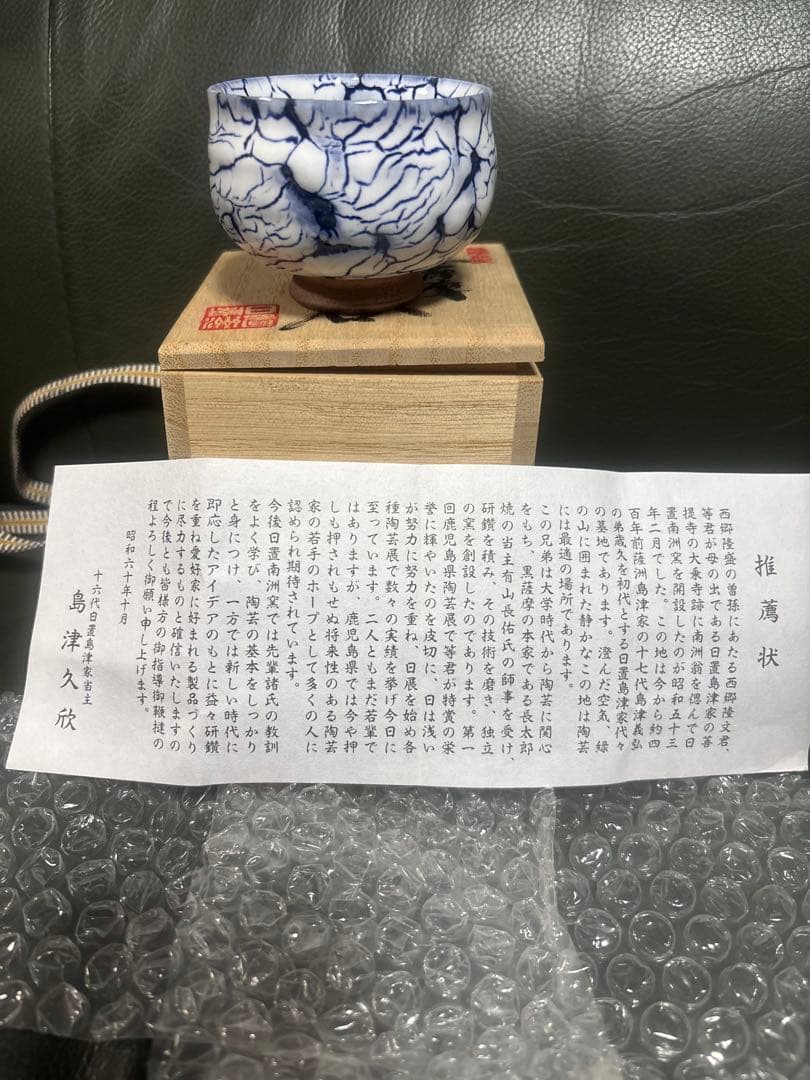 推薦状
西郷隆盛の曽孫にあたる西郷隆文君、
等君が母の出である日置島津家の菩
提寺の大乗寺跡に南洲翁を偲んで日
置南洲窯を開設したのが昭和五十三
年二月でした。この地は今から約四
百年前薩洲島津家の十七代島津義弘
の弟歳久を初代とする日置島津家代々
の墓地であります。澄んだ空気、緑
の山に囲まれた静かなこの地は陶芸
には最適の場所であります。
この兄弟は大学時代から陶芸に関心
をもち、黒薩摩の本家である長太郎
焼の当主有山長佑氏の師事を受け、
研鑽を積み、その技術を磨き、独立
の窯を創設したのであります。第一
回鹿児島県陶芸展で等君が特賞の栄
誉に揮やいたのを皮切に、日は浅い
が努力に努力を重ね、日展を始め各
種陶芸展で数々の実績を挙げ今日に
至っています。二人ともまだ若輩で
はありますが、鹿児島県では今や押
しも押されもせぬ将来性のある陶芸
家の若手のホープとして多くの人に
認められ期待されています。
今後日置南洲窯では先輩諸氏の教訓
をよく学び、陶芸の基本をしっかり
と身につけ、一方では新しい時代に
即応したアイデアのもとに益々研鑽
を重ね愛好家に好まれる製品づくり
に尽力するものと確信いたしますの
で今後とも皆様方の御指導御鞭撻の
程よろしく御願い申し上げます。
昭和六十年十月
十六代日置島津家当主
島津久欣